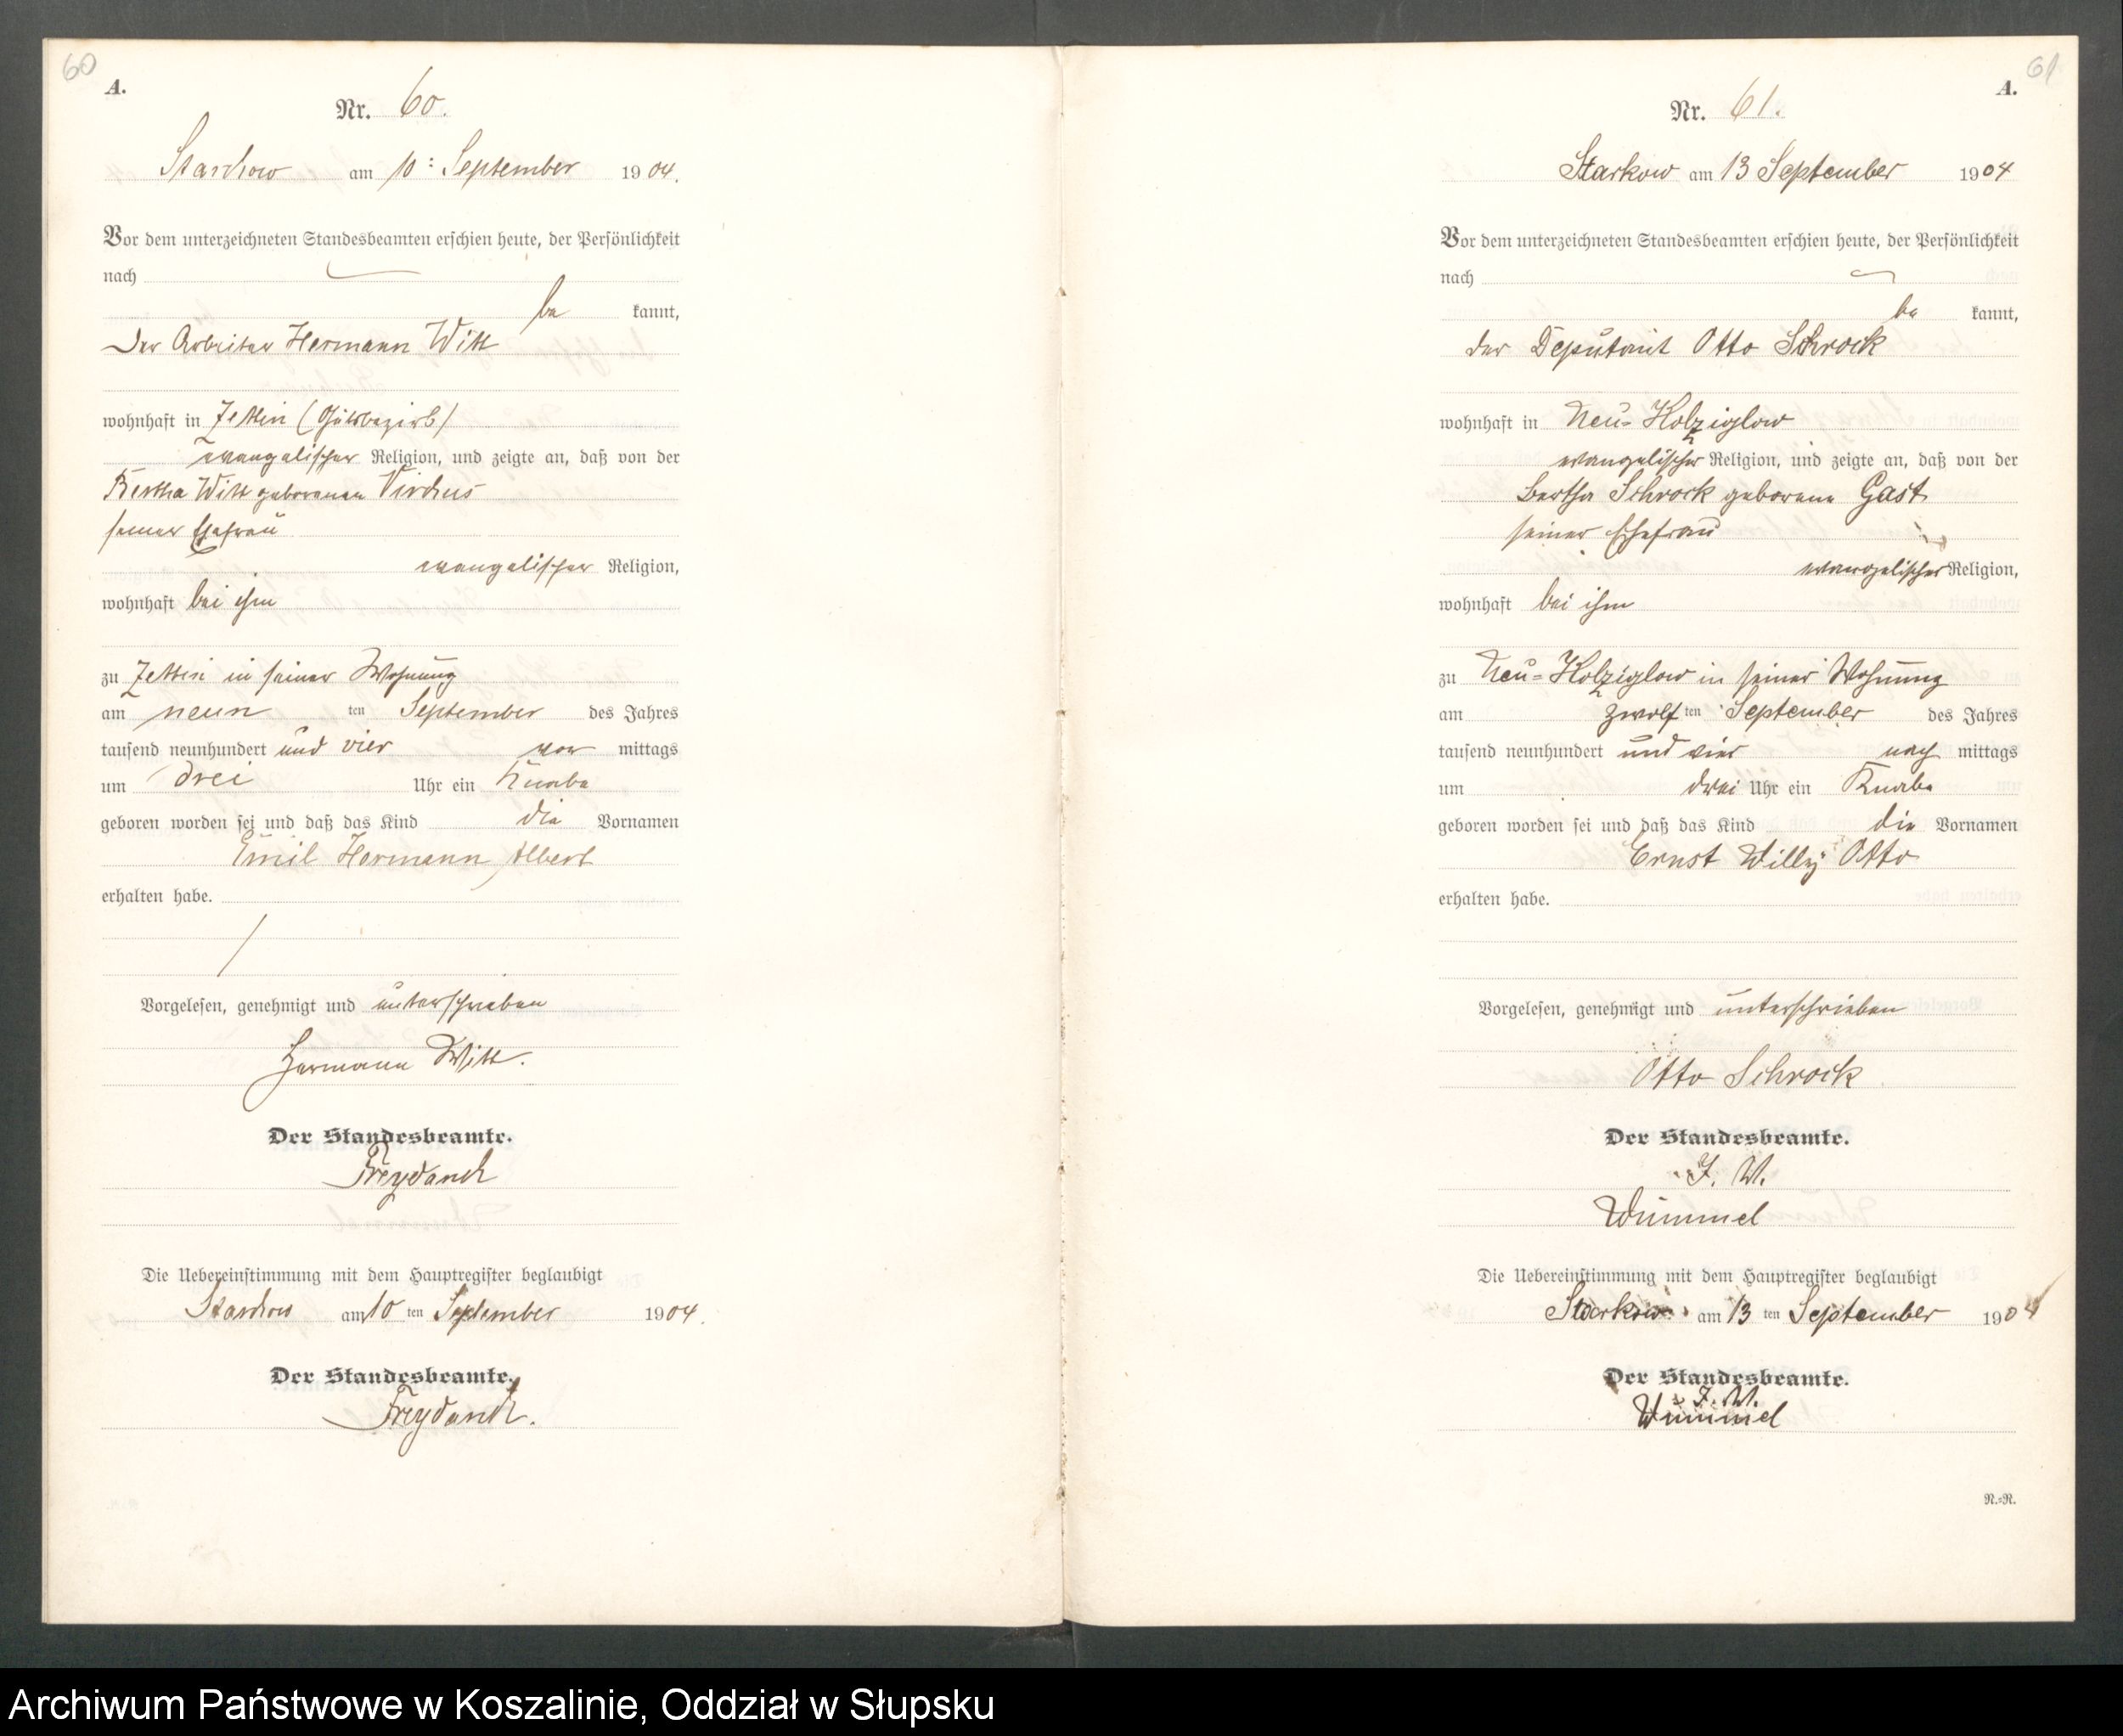 60
A.
Nr. 60.
Starckow am 10: September 1904.
Vor dem unterzeichneten Standesbeamten erschien heute, der Persönlichkeit
nach
be kannt,
Der Arbeiter Hermann Witt
wohnhaft in Zettin (Gutsbezirk)
evangelischer Religion, und zeigte an, daß von der
Bertha Witt geborenen Virchus
seiner Ehefrau
evangelischer Religion,
wohnhaft bei ihm
zu Zettin in seiner Wohnung
am neun ten September des Jahres
tausend neunhundert und vier vor mittags
um drei Uhr ein Knabe
geboren worden sei und daß das Kind die Vornamen
Emil Hermann Albert
erhalten habe.
Vorgelesen, genehmigt und unterschrieben
Hermann Witt.
Der Standesbeamte.
Freydanck
Die Uebereinstimmung mit dem Hauptregister beglaubigt
Starckow am 10 ten September 1904.
Der Standesbeamte.
Freydanck.
61
A.
Nr. 61.
Starkow am 13 September 1904
Vor dem unterzeichneten Standesbeamten erschien heute, der Persönlichkeit
nach
be kannt,
der Deputant Otto Schrock
wohnhaft in Neu-Kolziglow
evangelischer Religion, und zeigte an, daß von der
Bertha Schrock geborene Gast
seiner Ehefrau
evangelischer Religion,
wohnhaft bei ihm
zu Neu-Kolziglow in seiner Wohnung
am zwölf ten September des Jahres
tausend neunhundert und vier nach mittags
um drei Uhr ein Knabe
geboren worden sei und daß das Kind die Vornamen
Ernst Willy Otto
erhalten habe.
Vorgelesen, genehmigt und unterschrieben
Otto Schrock
Der Standesbeamte.
J. V.
Wummel
Die Uebereinstimmung mit dem Hauptregister beglaubigt
Starkow am 13 ten September 1904
Der Standesbeamte.
J. V.
Wummel
R.=R.
Archiwum Państwowe w Koszalinie, Oddział w Słupsku